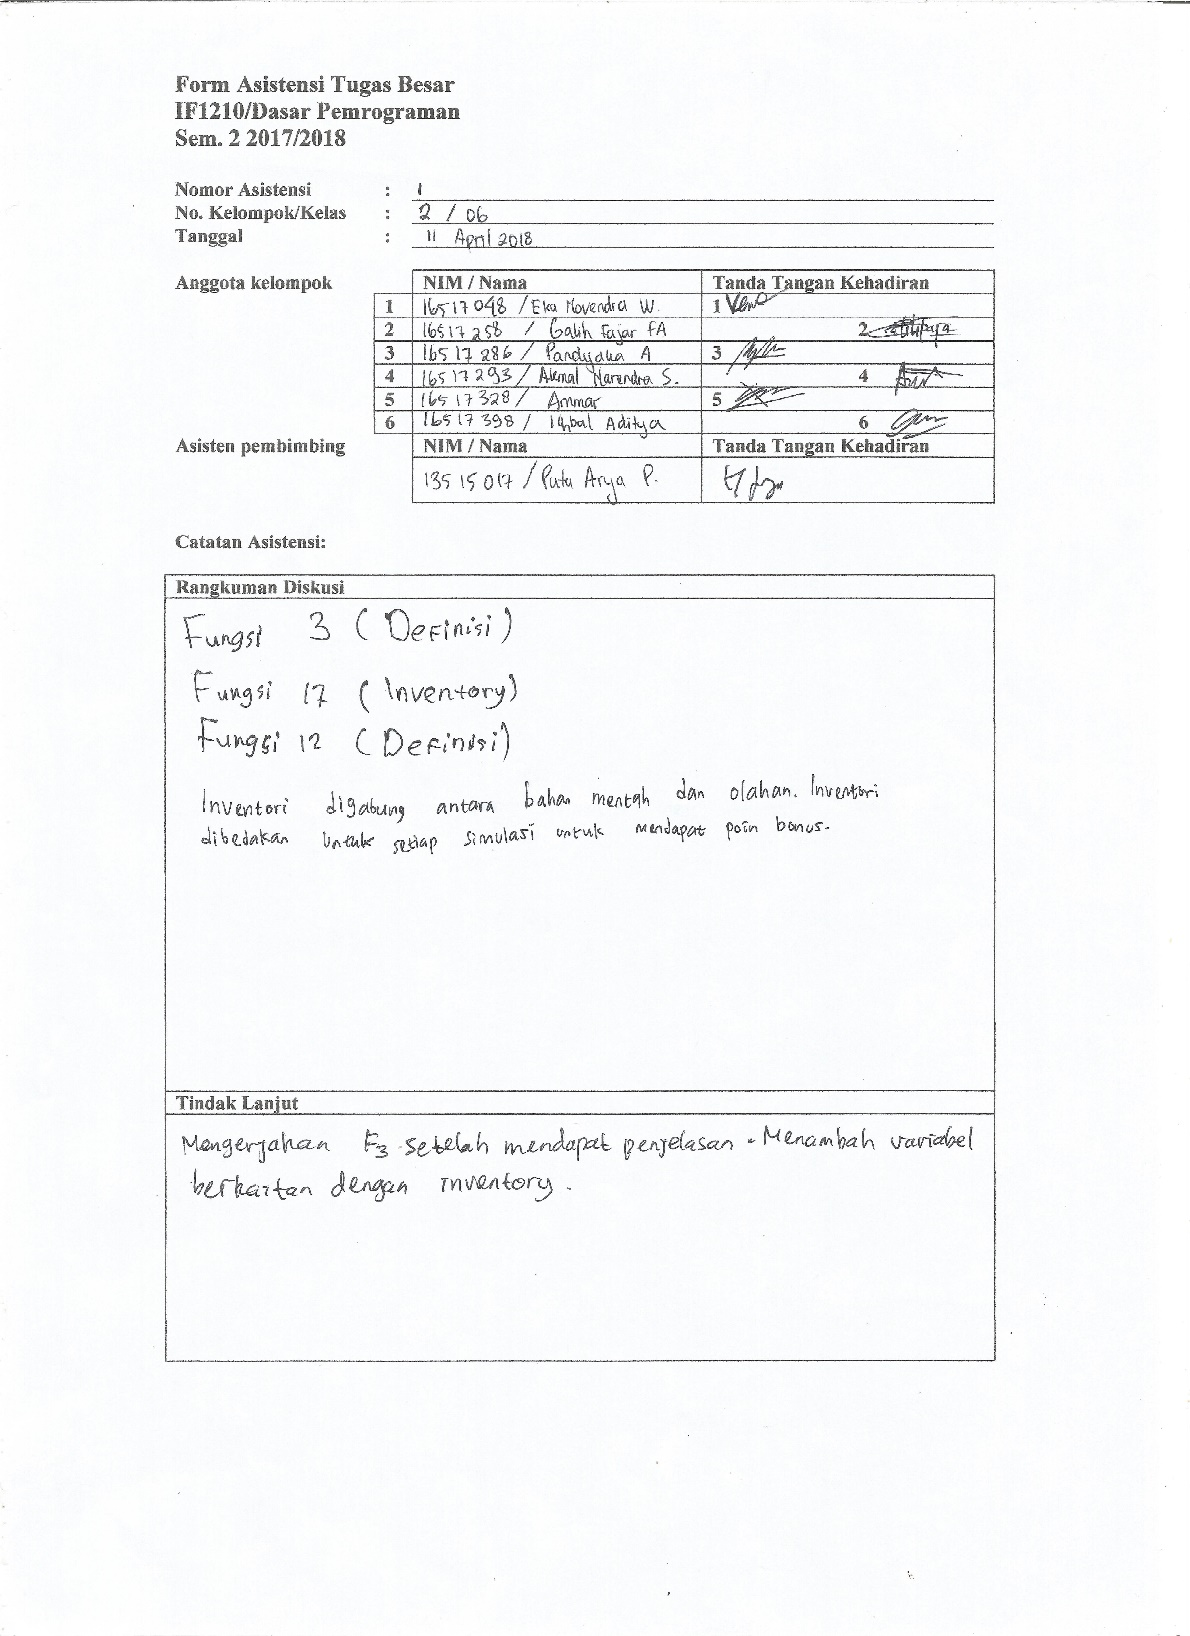 Form Asistensi Tugas Besar
IF1210/Dasar Pemrograman
Sem. 2 2017/2018
Nomor Asistensi : 1
No. Kelompok/Kelas : 2 / 06
Tanggal : 11 April 2018
Anggota kelompok NIM / Nama Tanda Tangan Kehadiran
1 16517048 / Eka Novendra W. 1
2 16517258 / Galih Fajar FA 2
3 16517286 / Pandyaka A 3
4 16517293 / Akmal Narendra S. 4
5 16517328 / Ammar 5
6 16517398 / Iqbal Aditya 6
Asisten pembimbing NIM / Nama Tanda Tangan Kehadiran
13515017 / Putu Arya P.
Catatan Asistensi:
Rangkuman Diskusi
Fungsi 3 (Definisi)
Fungsi 17 (Inventory)
Fungsi 12 (Definisi)
Inventori digabung antara bahan mentah dan olahan. Inventori
dibedakan untuk setiap simulasi untuk mendapat poin bonus.
Tindak Lanjut
Mengerjakan F3 setelah mendapat penjelasan. Menambah variabel
berkaitan dengan inventory.